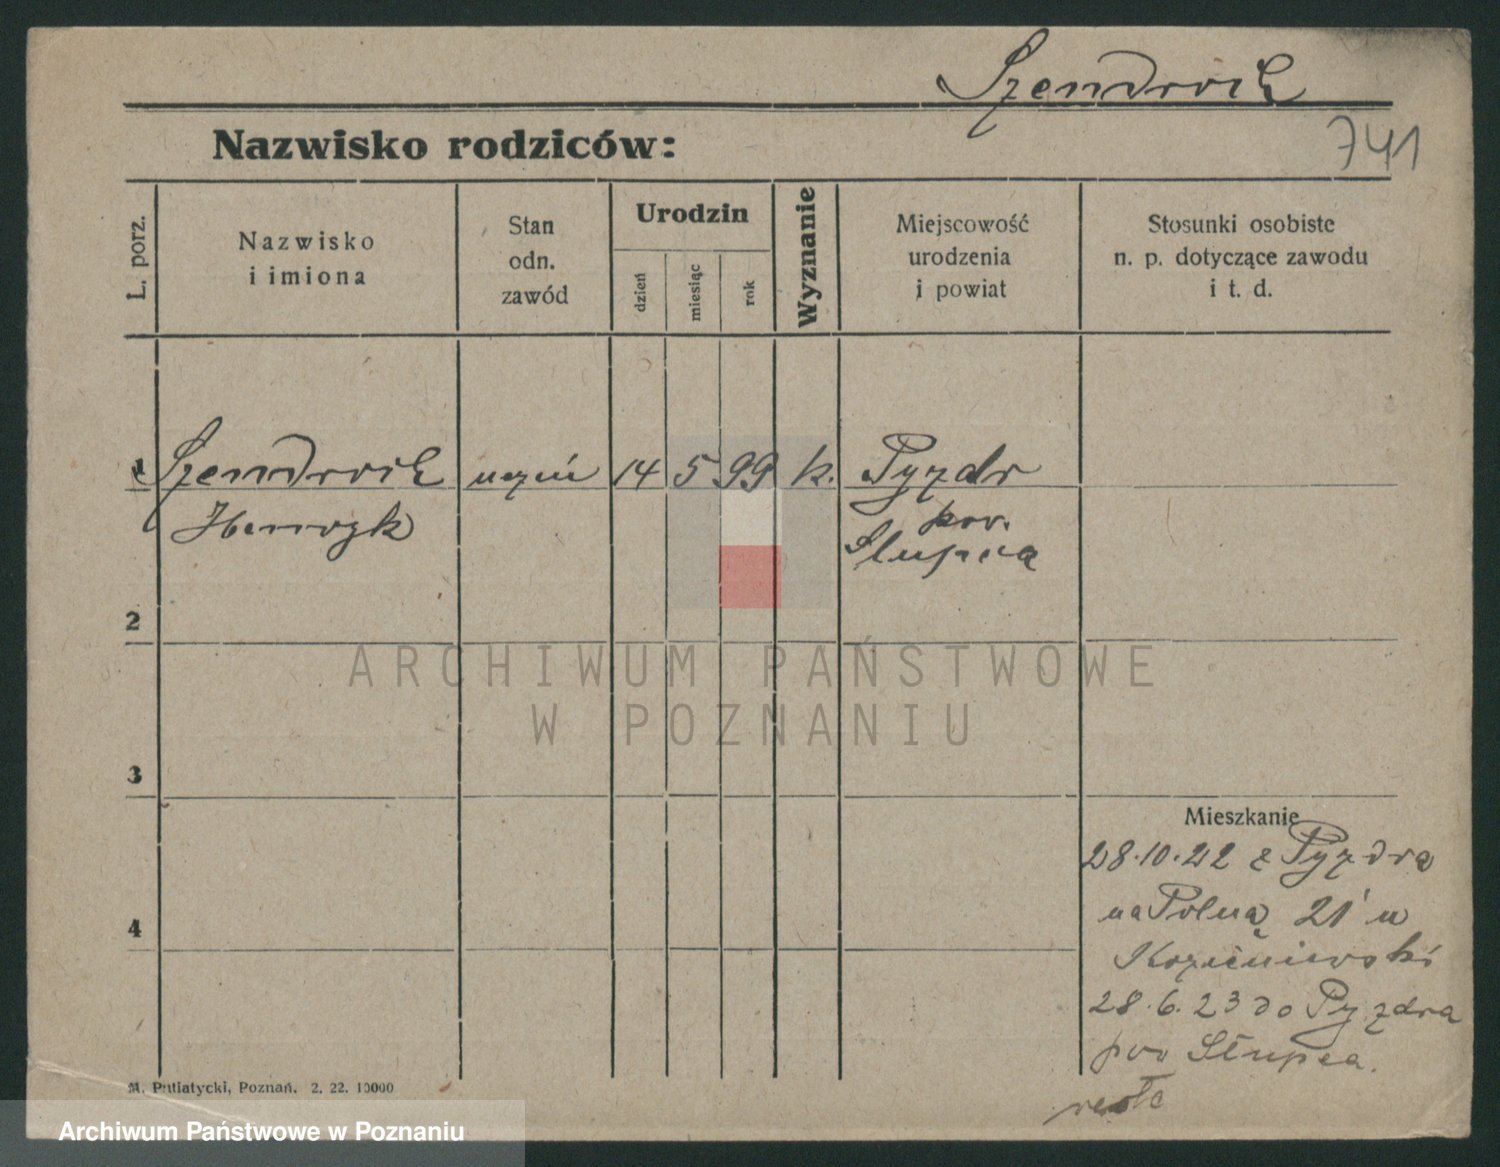 Szendroik
Nazwisko rodziców:
741
L. porz.
Nazwisko
i imiona
Stan
odn.
zawód
Urodzin
dzień
miesiąc
rok
Wyznanie
Miejscowość
urodzenia
i powiat
Stosunki osobiste
n. p. dotyczące zawodu
i t. d.
1 Szendroik uczeń 14 5 99 k. Pyzdr
Henryk pow.
Słupca
2
3
4
Mieszkanie
28.10.22 z Pyzdra
na Polną 21 u
28.6.23 do Pyzdra
pow Słupca.
M. Putiatycki, Poznań. 2. 22. 10000
ARCHIWUM PAŃSTWOWE
W POZNANIU
Archiwum Państwowe w Poznaniu